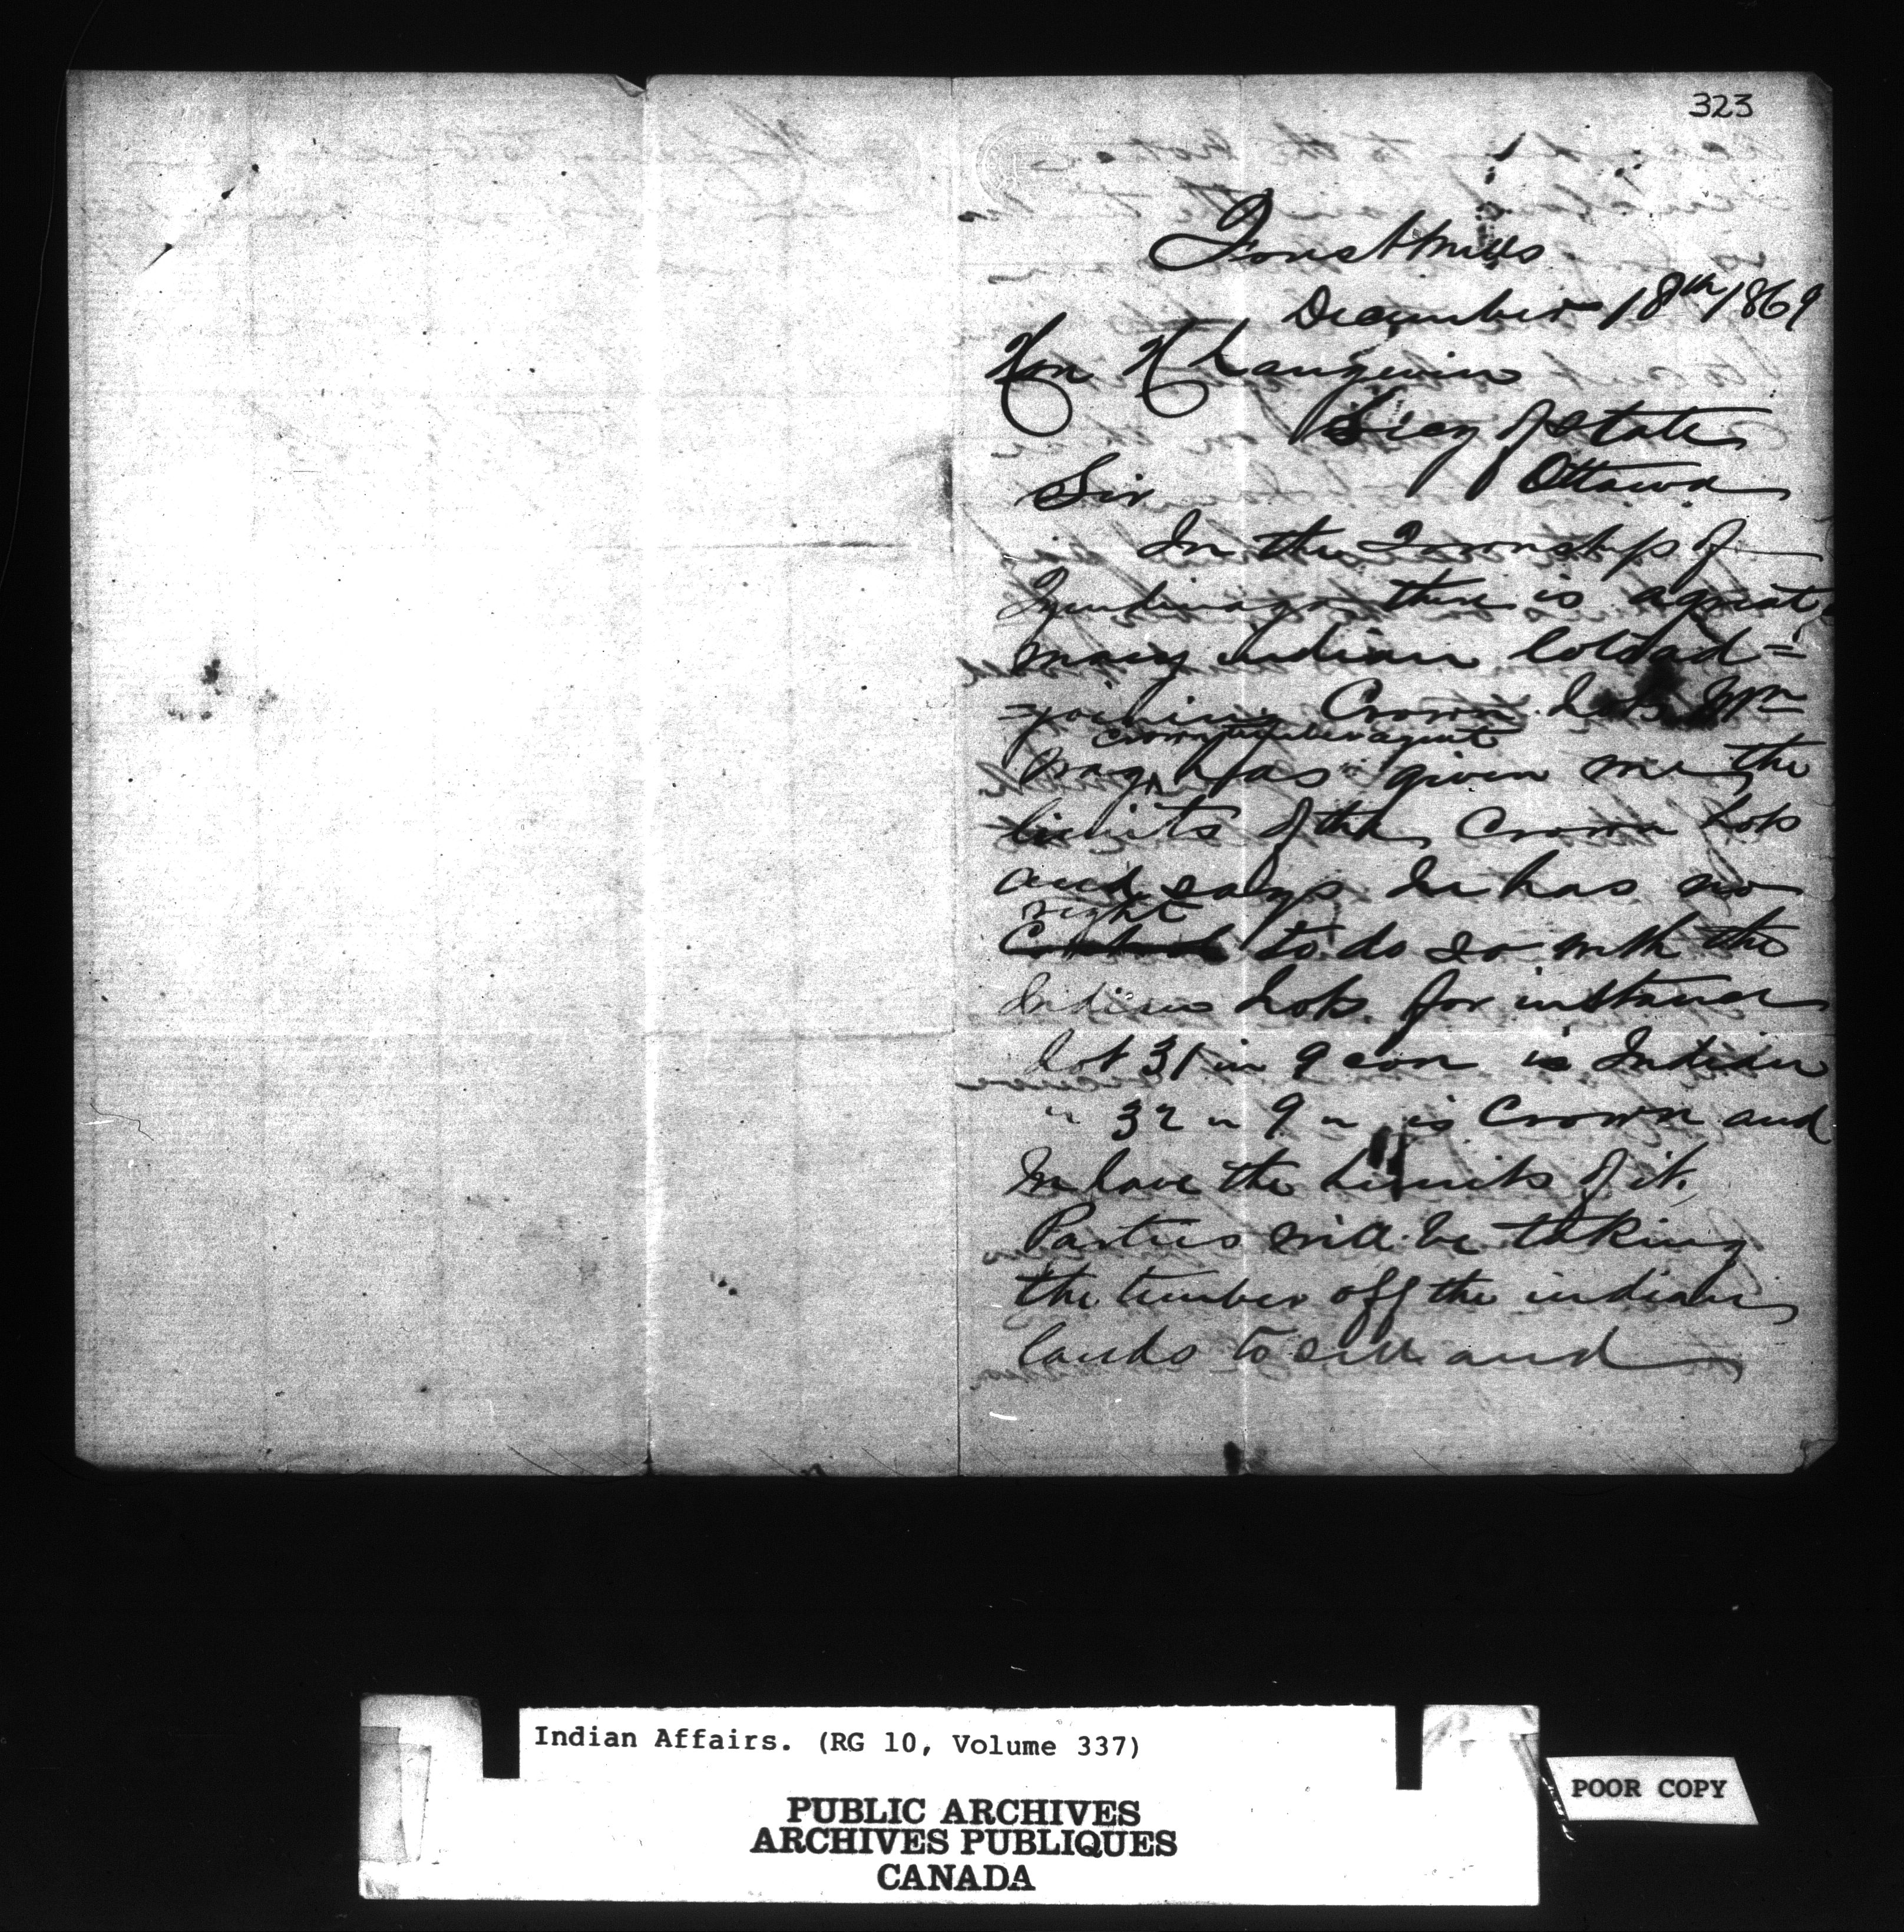 323
Forest mills
December 18th 1869
Hon H Langevin
Secy of State
Ottawa
Sir
In the Township of
Tyendinaga there is a great
many indian lots ad=
=joining Crown Lots Wm
crown timber agent
has given me the
limits of the Crown Lots
and says he has no
right
to do so with the
Indian Lots. for instance
Lot 31 in 9 con is Indian
" 32 " 9 " is Crown and
We have the Limits of it.
Parties will be taking
the timber off the indian
lands to sell and
Indian Affairs. (RG 10, Volume 337)
PUBLIC ARCHIVES
ARCHIVES PUBLIQUES
CANADA
POOR COPY